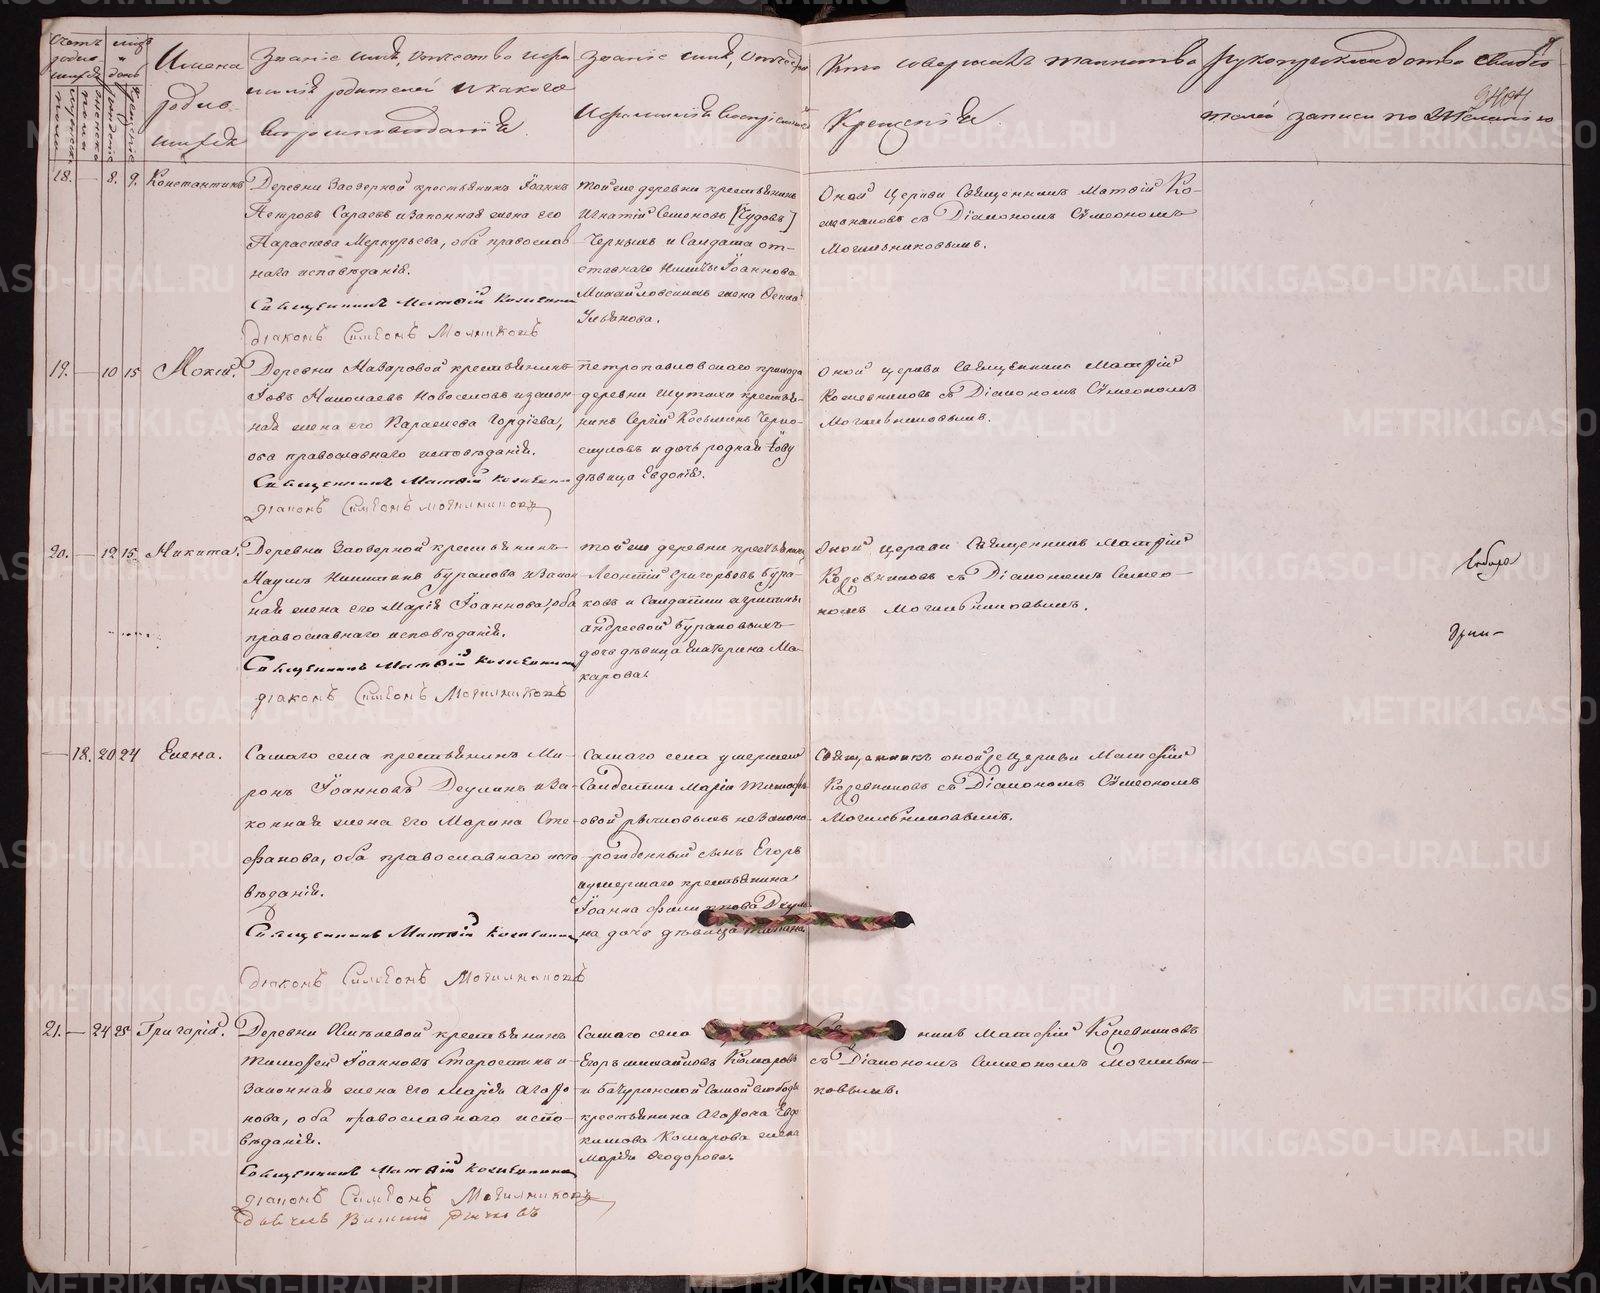 Счетъ родив шихся
мѣс и день
Имена родив шихся
Званіе имя, Отчество и фа
милія родителей и какого
вѣроисповѣданія.
Званіе имя, Отчество
и фамилія воспріемник
Кто совершалъ таинство
Крещенія.
Рукоприкладство свидѣ
телей записи по желанію
мужеска пола
женска пола
рожденія
крещенія
18. — 8. 9. Константинъ
Деревни Заозерной крестьянинъ Іоаннъ
Петровъ Сараевъ и законная жена его
Параскева Меркурьева, оба православ
наго исповѣданія.
Священникъ Матѳій Кожевник
діаконъ Симеонъ
Тойже деревни крестьянинъ
Игнатій Семеновъ [Чудовъ]
Черныхъ и Солдата от-
ставнаго Никиты Іоаннова
Михайловскихъ жена
Ульянова.
Оной Церкви Священникъ Матѳій Ко-
жевниковъ съ Діакономъ Сѵмеономъ
Могильниковымъ.
19. — 10 15 Мокій.
Деревни Назаровой крестьянинъ
Іовъ Николаевъ Новоселовъ и закон-
ная жена его Параскева Гордіева,
оба православнаго исповѣданія.
Священникъ Матѳій Кожевник
діаконъ Симеонъ Могильниковъ
Петропавловскаго прихода
деревни Шутихи крестья-
нинъ Сергій Косьминъ Черно-
скуловъ и дочь родная Іову
дѣвица Евдокія.
Оной церкви Священникъ Матѳій
Кожевниковъ съ Діакономъ Сѵмеономъ
Могильниковымъ.
20. — 12 15 Никита.
Деревни Заозерной крестьянинъ
Наумъ Никитинъ Бураковъ и закон
ная жена его Марія Іоаннова, оба
православнаго исповѣданія.
Священникъ Матѳій Кожевник
діаконъ Симеонъ Могильниковъ
Тойже деревни крестьянин
Леонтій Григорьевъ Бура-
ковъ и Солдатки Агрипины
Андреевой Бураковыхъ
дочь дѣвица Екатерина Ма-
карова.
Оной церкви Священникъ Матѳій
Кожевниковъ съ Діакономъ Симео-
номъ Могильниковымъ.
— 18. 20 24 Елена.
Самаго села крестьянинъ Ми-
ронъ Іоанновъ Деулинъ и за-
конная жена его Марина Сте-
фанова, оба православнаго испо
вѣданія.
Священникъ Матѳій Кожевник
діаконъ Симеонъ Могильниковъ
Самаго села умершей
Солдатки Маріи Тимофѣ
овой Рычковыхъ незаконно-
рожденный сынъ Егоръ
и умершаго крестьянина
Іоанна Деули
на дочь дѣвица Татіана
Священникъ оной церкви Матѳій
Кожевниковъ съ Діакономъ Сѵмеономъ
Могильниковымъ.
21. — 24 25 Григорій.
Деревни крестьянинъ
Тимофей Іоанновъ Старостинъ и
Законная жена его Марія Агафо
нова, оба православнаго испо-
вѣданія.
Священникъ Матѳій Кожевник
діаконъ Симеонъ Могильниковъ
Рычковъ
Самаго села
Егоръ Комаровъ
и самой слободы
крестьянина Агафона Евдо
кимова Комарова жена
Марія Ѳеодорова.
никъ Матѳій Кожевниковъ
съ Діакономъ Симеономъ Могильни-
ковымъ.
METRIKI.GASO-URAL.RU